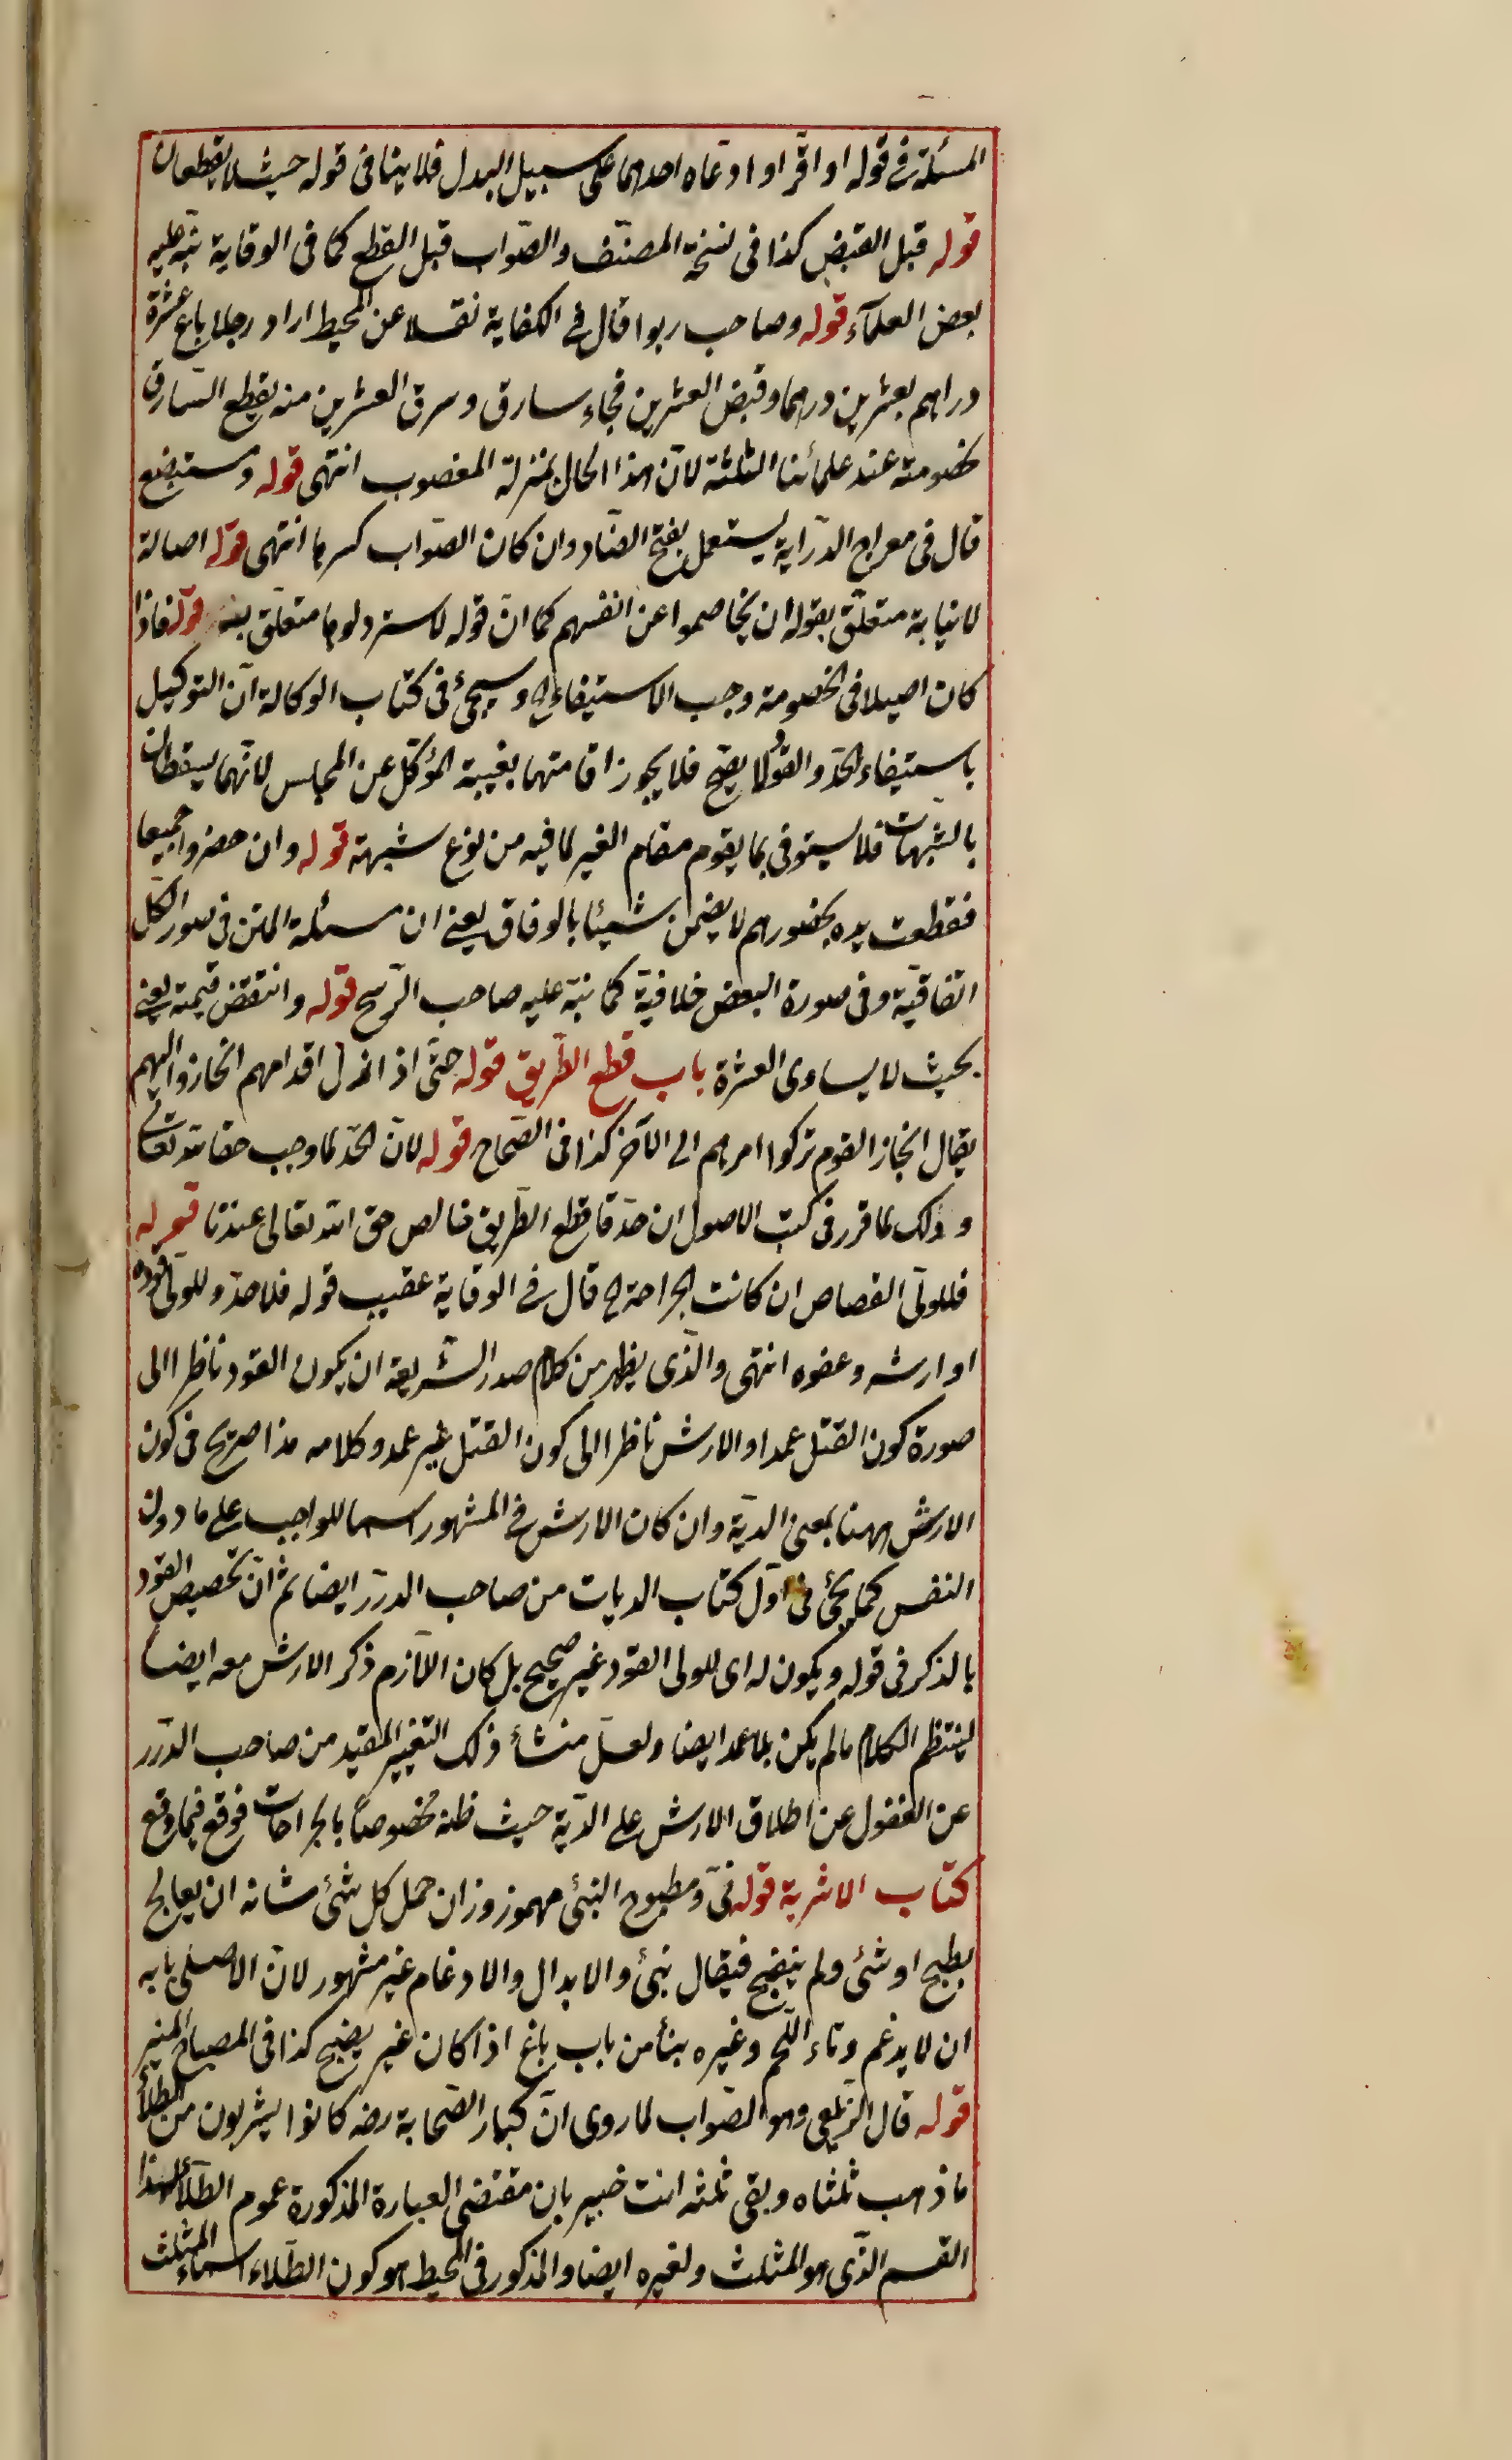 المسئلة في قوله او اقر او ادعاه احدهما على سبيل البدل فلا ينافى قوله حيث لا يقطعان
قوله قبل القبض كذا فى نسخة المصنّف والصّواب قبل القطع كما فى الوقاية نبّه عليه
بعض العلمآء قوله وصاحب ربوا قال في الكفاية نقلا عن المحيط اراد رجلا باع عشرة
دراهم بعشرين درهما وقبض العشرين فجاء سارق وسرق العشرين منه يقطع السّارق
بخصومته عند علمائنا الثلثة لانّ هذا المال بمنزلة المغصوب انتهى قوله ومستبضع
قال فى معراج الدّراية يستعمل بفتح الضّاد وان كان الصّواب كسرها انتهى قوله اصالة
لا نيابة متعلّق بقوله ان يخاصموا عن انفسهم كما انّ قوله لاستردلوها متعلّق به قوله فاذا
كان اصيلا فى الخصومة وجب الاستيفاء الخ وسيجئ فى كتاب الوكالة انّ التوكيل
باستيفاء الحدّ والقود لا يصحّ فلا يجوز اقامتهما بغيبة المؤكّل عن المجلس لانّهما يسقطان
بالشبهات فلا يستوفى بما يقوم مقام الغير لما فيه من نوع شبهة قوله وان حضروا جميعا
فقطعت يده بحضورهم لا يضمن شيئا بالوفاق يعنى ان مسئلة المتن فى صور الكلّ
اتفاقيّة وفى صورة البعض خلافيّة كما نبّه عليه صاحب الترشيح قوله وانتقض قيمته يعنى
بحيث لا يساوى العشرة باب قطع الطّريق قوله حتّى اذ انزل اقدامهم انحازوا اليهم
يقال انحاز القوم تركوا امرهم الى الآخر كذا فى الصّحاح قوله لانّ الحدّ لما وجب حقا لله تعالى
وذلك لما قرر فى كتب الاصول ان حدّ قاطع الطّريق خالص حق الله تعالى عندنا قوله
فللولىّ القصاص ان كانت الجراحة الخ قال في الوقاية عقيب قوله فلا حدّ وللولىّ قوده
او ارشه وعفوه انتهى والّذى يظهر من كلام صدر الشّريعة ان يكون القود ناظرا الى
صورة كون القتل عمدا والارش ناظرا الى كون القتل غير عمد وكلامه هذا صريح فى كون
الارش ههنا بمعنى الديّة وان كان الارش في المشهور اسما للواجب على ما دون
النفس كما يجئ فى اوّل كتاب الديات من صاحب الدرر ايضا ثم انّ تخصيص القود
بالذكر فى قوله ويكون له اى للولى القود غير صحيح بل كان اللّازم ذكر الارش معه ايضا
لينتظم الكلام ما لم يكن بلا عمد ايضا ولعلّ منشأ ذلك التغيير المقيّد من صاحب الدّرر
عن الغفول عن اطلاق الارش على الدّية حيث ظنه مخصوصًا بالجراحات فوقع فيما وقع
كتاب الاشربة قوله نىّ ومطبوخ النيئ مهموز وزان حمل كل شئ شانه ان يعالج
بطبخ او شئ ولم ينضج فيقال نيئ والابدال والادغام غير مشهور لانّ الاصلى بابه
ان لا يدغم وناء اللّحم وغيره نيئا من باب باع اذا كان غير نضيج كذا فى المصباح المنير
قوله قال الزّيلعى وهو الصّواب لما روى انّ كبار الصّحابة رضه كانوا يشربون من الطّلأ
ما ذهب ثلثاه وبقى ثلثه انت خبير بان مقتضى العبارة المذكورة عموم الطّلأ لهذا
القسم الّذى هو المثلث ولغيره ايضا والمذكور فى المحيط هو كون الطّلاء اسما للمثلث